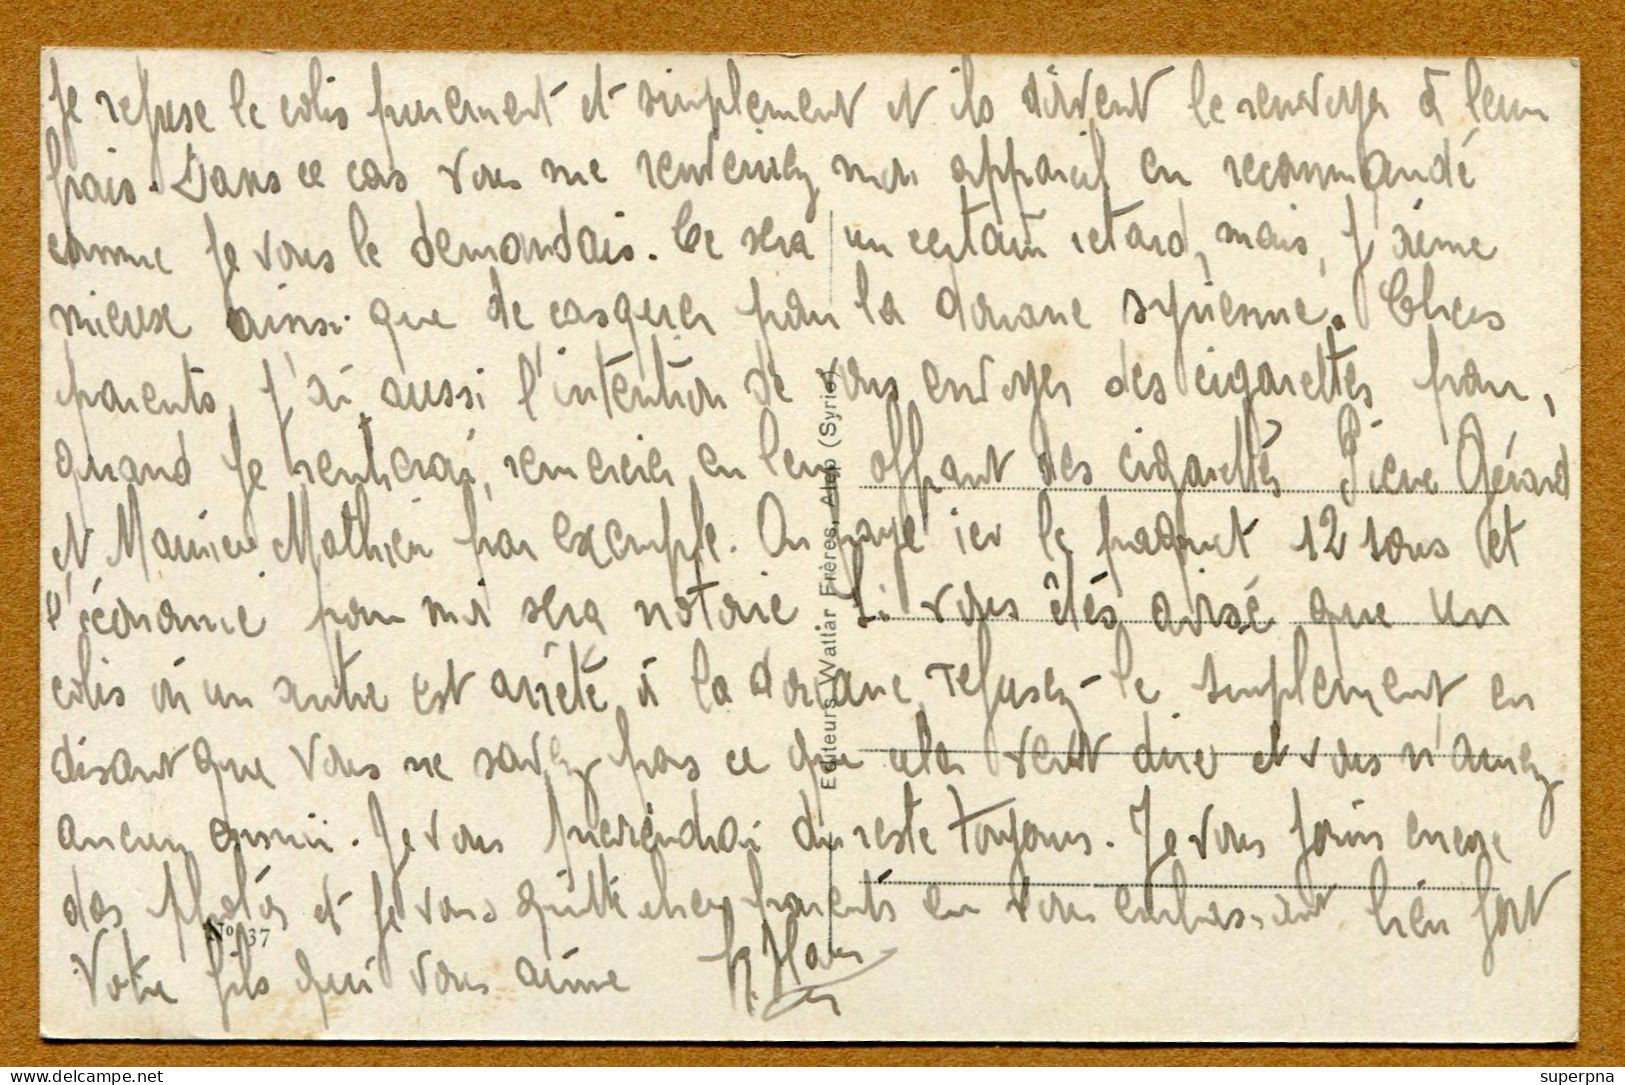 Je refuse le colis purement et simplement et ils doivent le renvoyer à leur
frais. Dans ce cas vous me renverrez mon appareil en recommandé
comme je vous le demandais. Ce sera un certain retard, mais, j'aime
mieux ainsi que de casquer pour la douane syrienne. Chers
parents, j'ai aussi l'intention de vous envoyer des cigarettes pour,
quand je rentrerai, remercier en leur offrant des cigarettes Pierre Gérard
et Mathieu par exemple. On paye ici le paquet 12 sous et
l'économie pour moi sera notoire Si vous êtes avisé que un
colis ou un autre est arrêté à la douane, refusez-le simplement en
disant que vous ne savez pas ce que cela veut dire et vous n'aurez
aucun ennui. Je vous préviendrai du reste toujours. Je vous joins encore
des photos et je vous quitte chers parents en vous embrassant bien fort
Votre fils qui vous aime
Editeurs Wattar Frères, Alep (Syrie)
No 37
superpna